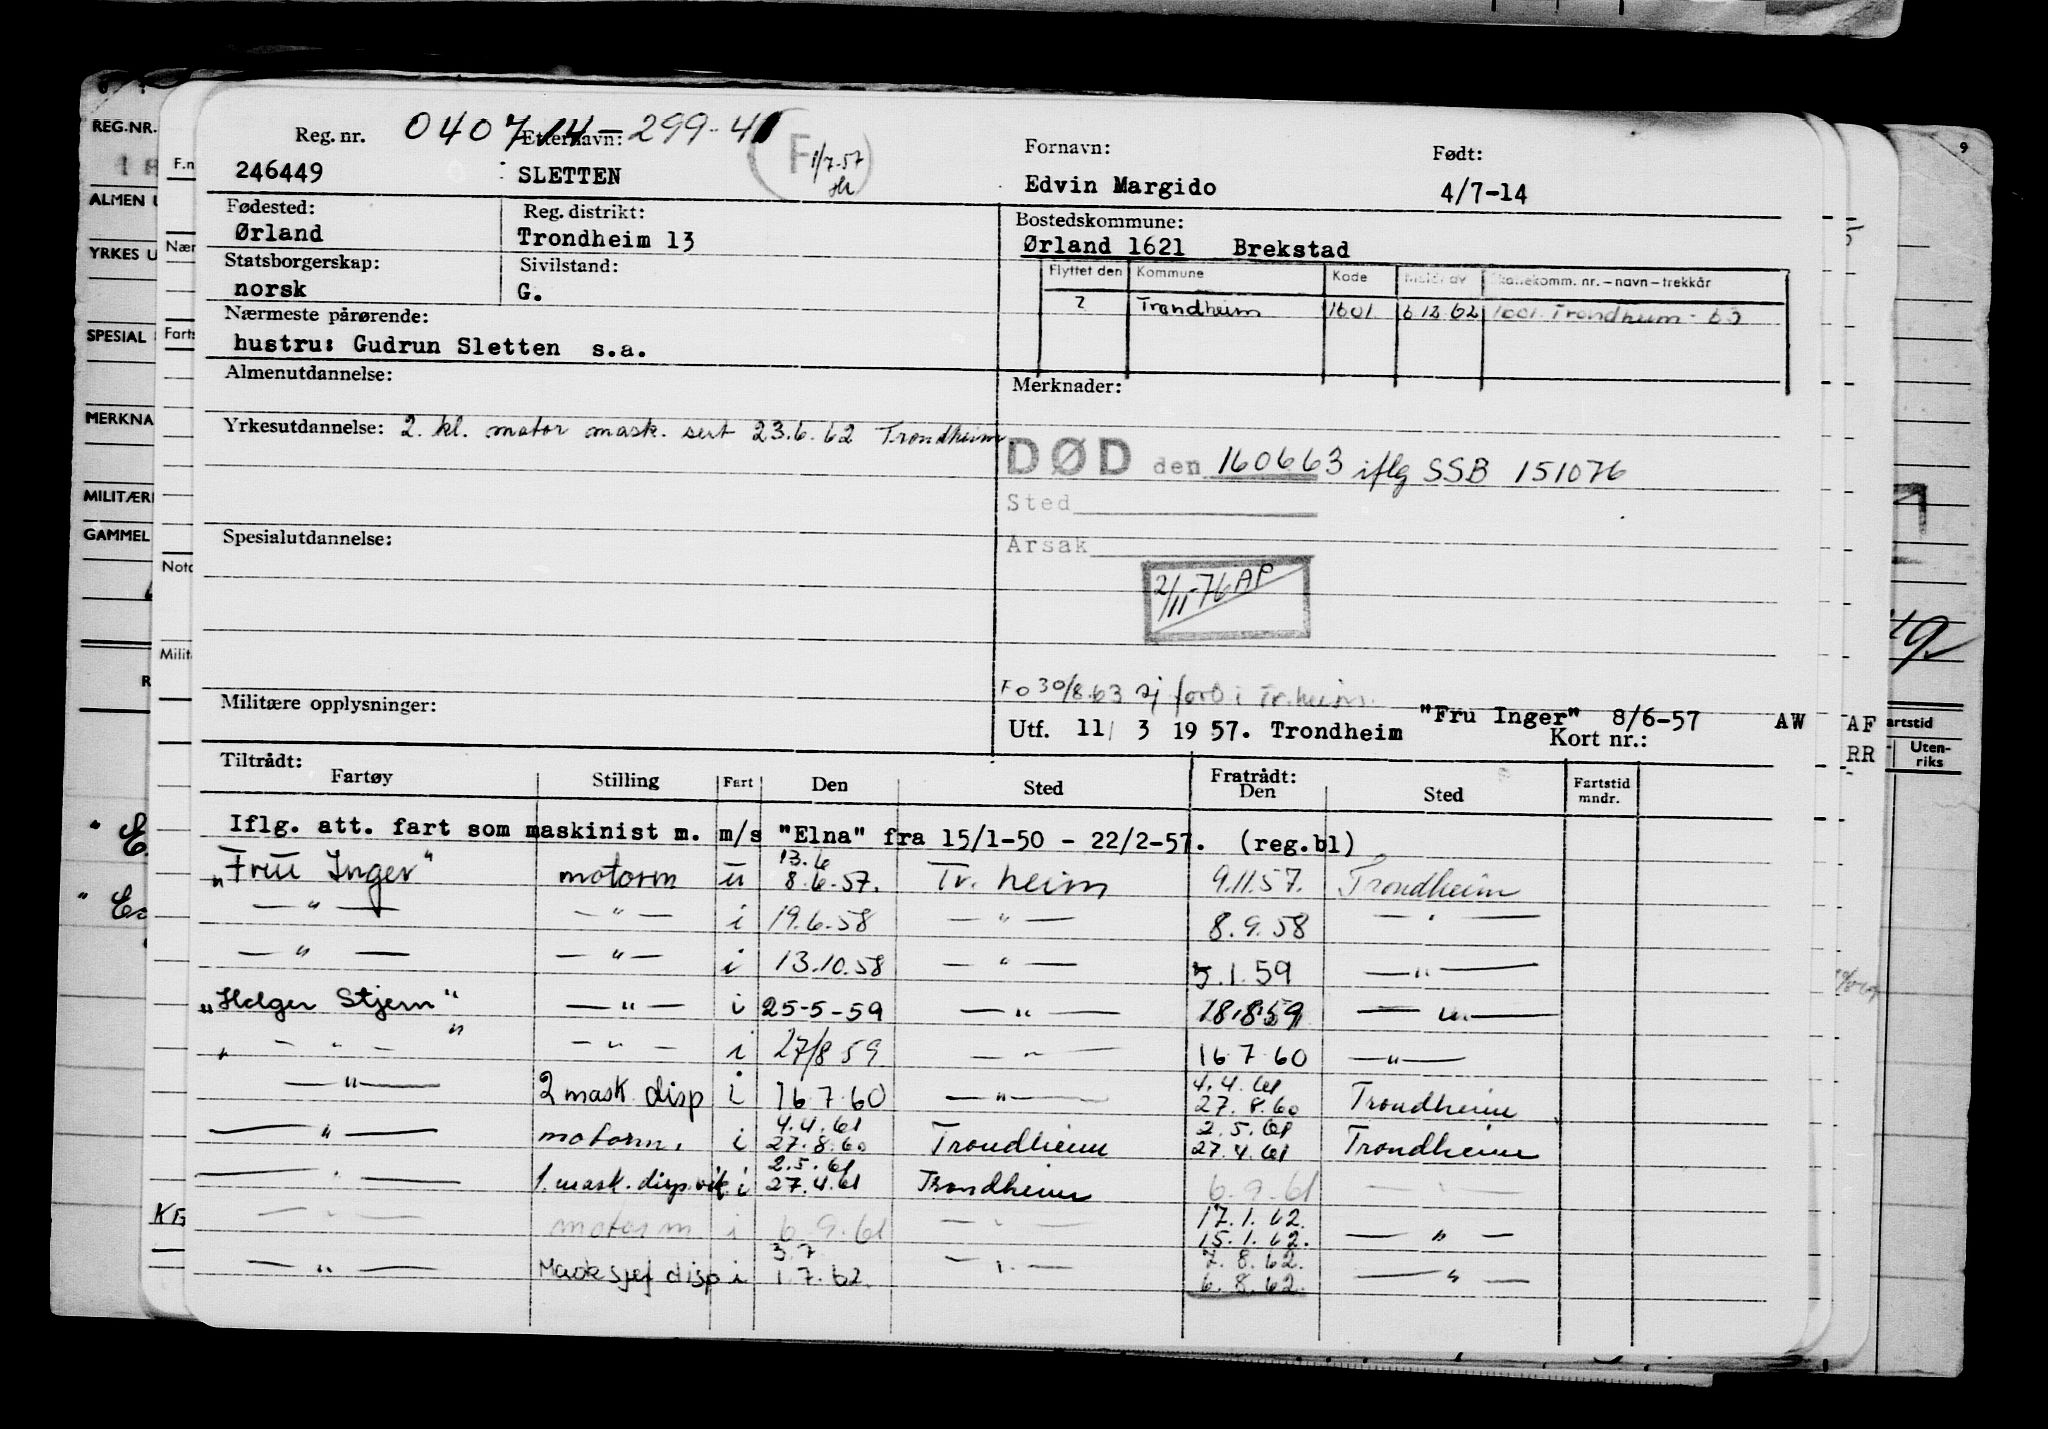 Reg. nr. 040714-299-41 Etternavn: Fornavn: Født:
246449 SLETTEN F 1/7-57 Edvin Margido 4/7-14
Fødested: Reg. distrikt: Bostedskommune:
Ørland Trondheim 13 Ørland 1621 Brekstad
Statsborgerskap: Sivilstand: Flyttet den Kommune Kode Meld. av Skattekomm. nr. – navn – trekkår
norsk G. ? Trondheim 1601 6 12 62 1601 Trondheim - 63
Nærmeste pårørende:
hustru: Gudrun Sletten s.a.
Almenutdannelse: Merknader:
Yrkesutdannelse: 2. kl. motor mask. sert 23.6.62 Trondheim
DØD den 160663 iflg SSB 151076
Sted
Årsak
Spesialutdannelse:
2/11-76 AP
Fo 30/8.63 ford i Tr.heim.
Militære opplysninger: Utf. 11/ 3 19 57. Trondheim "Fru Inger" 8/6-57 AW
Kort nr.:
Tiltrådt: Fratrådt:
Fartøy Stilling Fart Den Sted Den Sted Fartstid mndr.
Iflg. att. fart som maskinist m. m/s "Elna" fra 15/1-50 - 22/2-57. (reg.bl)
13.6
"Fru Inger" motorm u 8.6.57. Tr. heim 9.11.57. Trondheim
— " — — " — i 19.6.58 — " — 8.9.58 — " —
— " — — " — i 13.10.58 — " — 5.1.59 — " —
"Helger Stjern" — " — i 25-5-59 — " — 18.8.59 — " —
— " — — " — i 27/8 59 — " — 16 7 60 — " —
4.4.61
— " — 2 mask disp i 16.7.60 — " — 27.8.60 Trondheim
4.4.61 2.5.61
— " — motorm. i 27.8.60 Trondheim 27.4.61 Trondheim
2.5.61
— " — 1. mask. disp. i 27.4.61 Trondheim 6.9.61 — " —
17.1.62.
— " — motorm i 6 9.61 — " — 15.1.62. — " —
3.7 7.8.62.
— " — Mask sjef disp i 1.7.62. — " — 6.8.62. — " —
REG.NR.
ALMEN U
YRKES U
SPESIAL
MERKNA
MILITÆRE
GAMMEL
F.n
Nær
Farts
Noto
Milit
KG
AF
RR
artstid
Uten-
riks
9